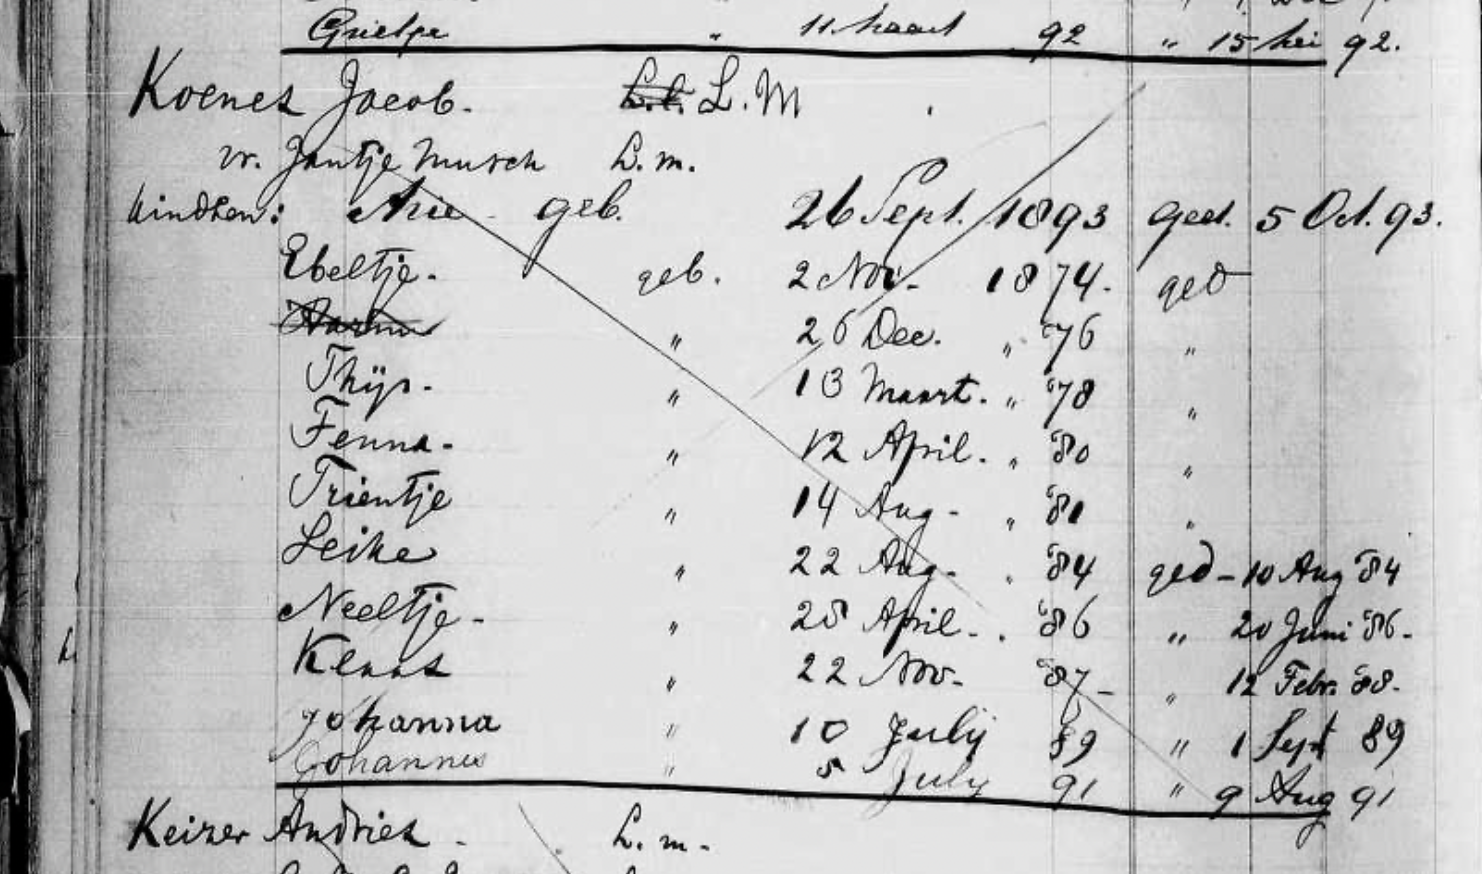 Grietje " 11 Maart 92 " 15 Mei 92.
Koenes Jacob. L.M
vr. Jantje Musch L.m.
kindren: Arie geb. 26 Sept. 1893 ged. 5 Oct. 93.
Ebeltje. geb. 2 Nov. 1874. ged
Harm " 26 Dec. " '76 "
Thijs. " 13 Maart. " '78 "
Fenna. " 12 April. " '80 "
Trientje " 14 Aug. " '81 "
Seike " 22 Aug. " '84 ged - 10 Aug '84
Neeltje. " 28 April. " '86 " 20 Juni '86.
Klaas " 22 Nov. '87 " 12 Febr. '88.
Johanna " 10 July 89 " 1 Sept 89
Johannes " 5 July 91 " 9 Aug 91
Keizer Andries. L.m.